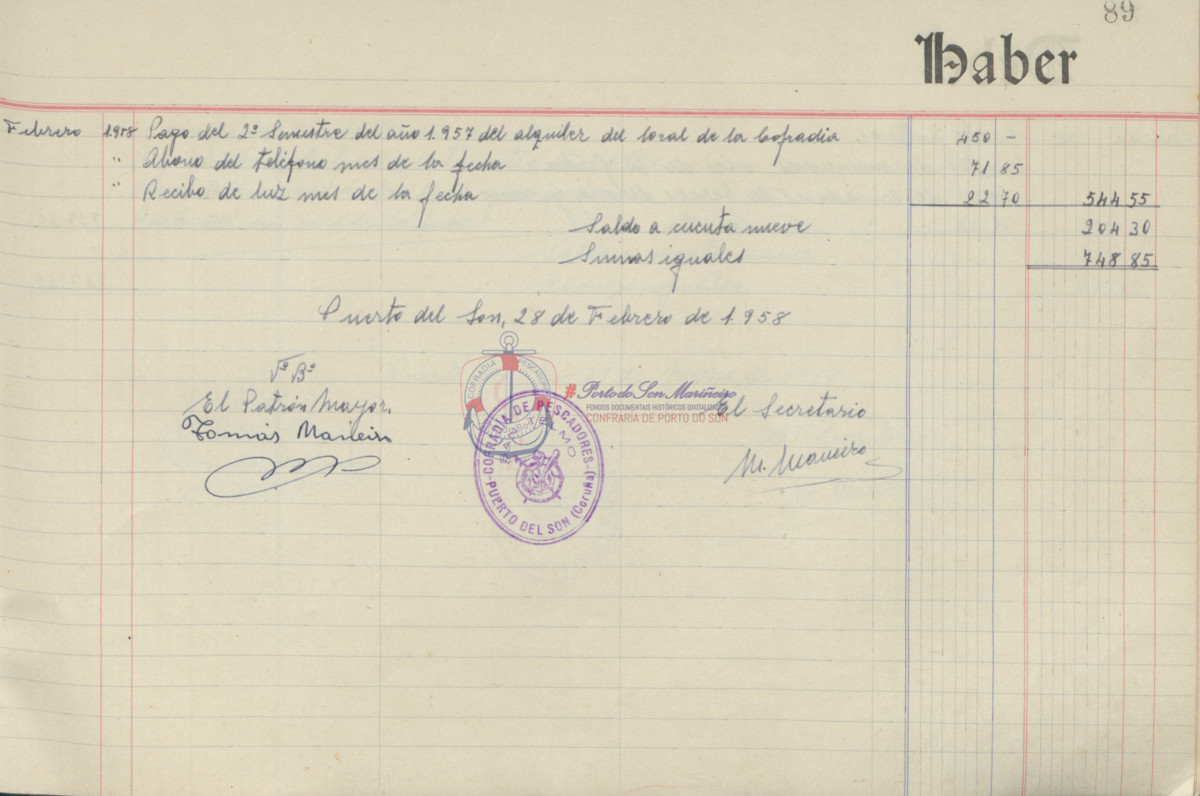 89
Haber
Febrero 1958 Pago del 2º Semestre del año 1.957 del alquiler del local de la Cofradia 450 -
" Abono del teléfono mes de la fecha 71 85
" Recibo de luz mes de la fecha 22 70 544 55
Saldo a cuenta nueve 204 30
Sumas iguales 748 85
Puerto del Son, 28 de Febrero de 1958
Vº Bº
El Patrón Mayor,
El Secretario
Tomás Maneiro
M. Maneiro
COFRADIA PESCADORES
#Porto do Son Mariñeiro
FONDOS DOCUMENTAIS HISTÓRICOS DIXITALIZADOS
CONFRARIA DE PORTO DO SON
COFRADIA DE PESCADORES
PUERTO DEL SON (Coruña)